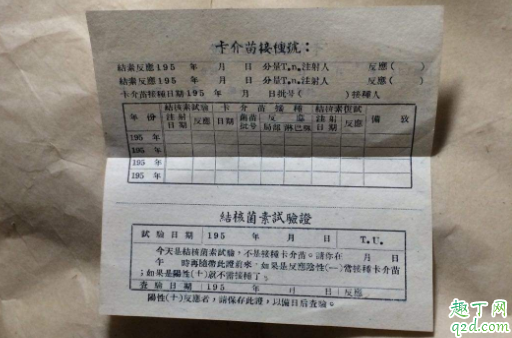 卡介苗接種號：
結素反應195　年　月　日　分量T.u.注射人　反應(　)
結素反應195　年　月　日　分量T.u.注射人　反應(　)
卡介苗接種日期195　年　月　日批號(　)接種人
年份　結核素試驗　卡介苗接種　結核素復試　備攷
注射日期　反應　日期　菌苗試号　反應　局部　淋巴腺　注射日期　反應
195　年
195　年
195　年
結核菌素試驗證
試驗日期　195　年　月　日　T.U.
今天是結核菌素試驗，不是接種卡介苗。請你在　月　日
午　時再攜帶此證前來，如果是反應陰性(一)當接種卡介苗
；如果是陽性(十)就不需接種了。
查驗日期　195　年　月　日　反應
陽性(十)反應者，請保存此證，以備日后查驗。
趣丁网
q2d.com